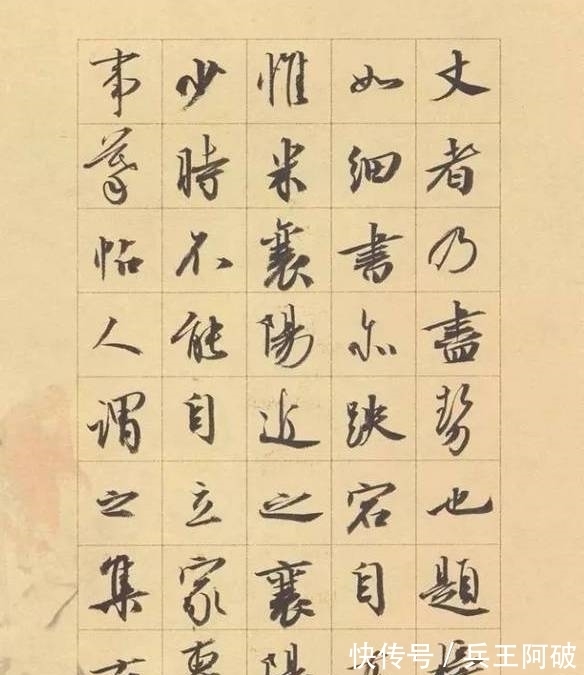 丈者乃盡勢也題榜
如細書亦跌宕自
惟米襄陽近之襄陽
少時不能自立家專
事摹帖人謂之集
快传号/兵王阿破